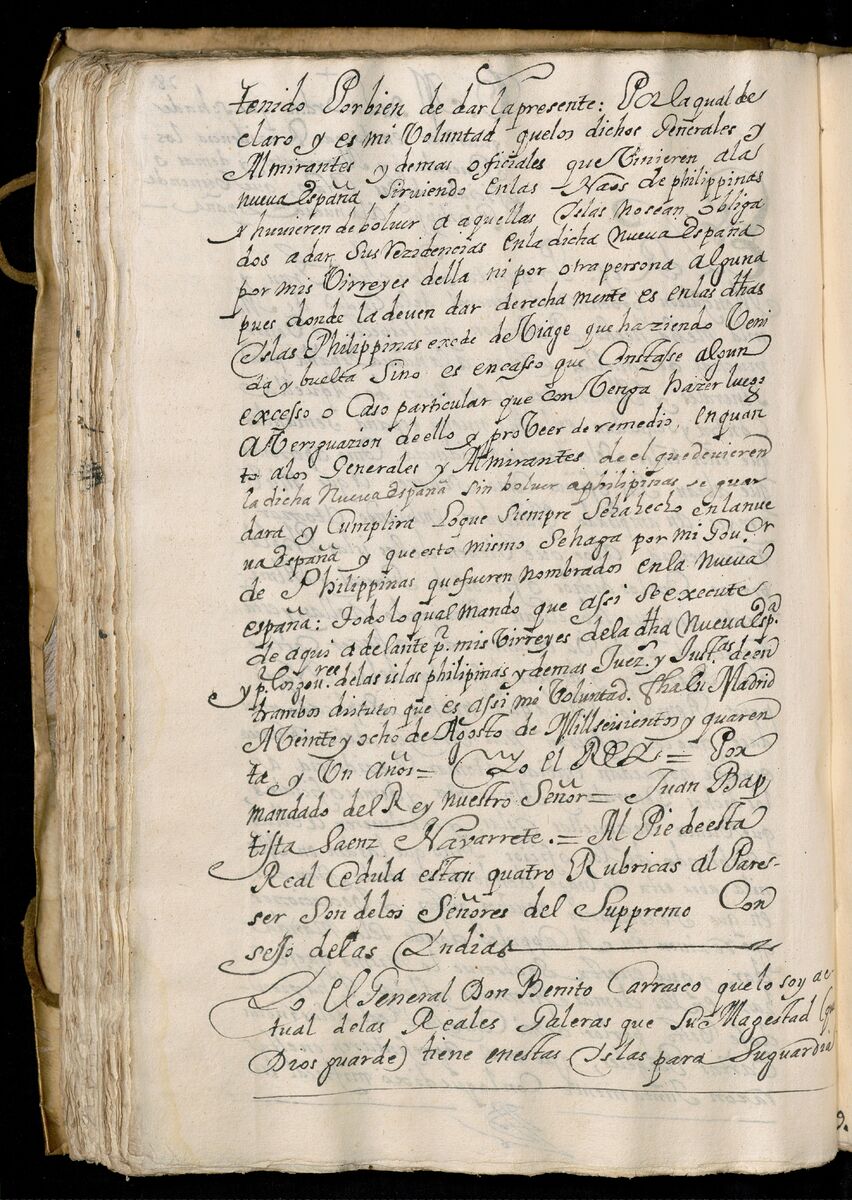 tenido Por bien de dar la presente: Por la qual de
claro y es mi Voluntad que los dichos Geñrales y
Almirantes y demas oficiales que Vinieren a las
nueva españa, sirviendo en las Naos de philippinas
y huvieren de bolver a aquellas Islas no sean obliga
dos a dar sus rezidencias en la dicha nueva españa
por mis Virreyes della ni por otra persona alguna
pues donde la deven dar derecha mente es en las dhas
Islas Philippinas excde de Viage que haziendo Veni
da y buelta sino es en casso que Constasse algun
excesso o Caso particular que con Venga hazer luego
a Veriguazion de ello y proVeer de remedio, en quan
to a los Generales y Almirantes de el que devieren
la dicha Nueva españa sin bolver a philipinas se guar
dara y Cumplira Lo que siempre se ha hecho en la nue
va españa y que esto mismo se haga por mi Gov.or
de Philippinas que fueren nombrados en la Nueva
españa: Todo lo qual mando que assi se execute
de aqui adelante p.r mis Virreyes de la dha Nueva Esp.a
y p.r los gov.res de las islas philipinas y demas Juez.s y Justas. de en
trambos distritos que es assi mi Voluntad. fha en Madrid
a Veinte y ocho de Agosto de Mill seiscientos y quaren
ta y Un Años = Yo el REY = Por
mandado del Rey nuestro Señor = Juan Bap
tista Saenz Navarrete. = Al Pie de esta
Real Cedula estan quatro Rubricas al Pares-
ser son de los Señores del Suppremo Con
sejo de las Indias
Yo El General Don Benito Carrasco que lo soy ac
tual de las Reales Galeras que Su Magestad (que
Dios guarde) tiene en estas Islas para Su guardia